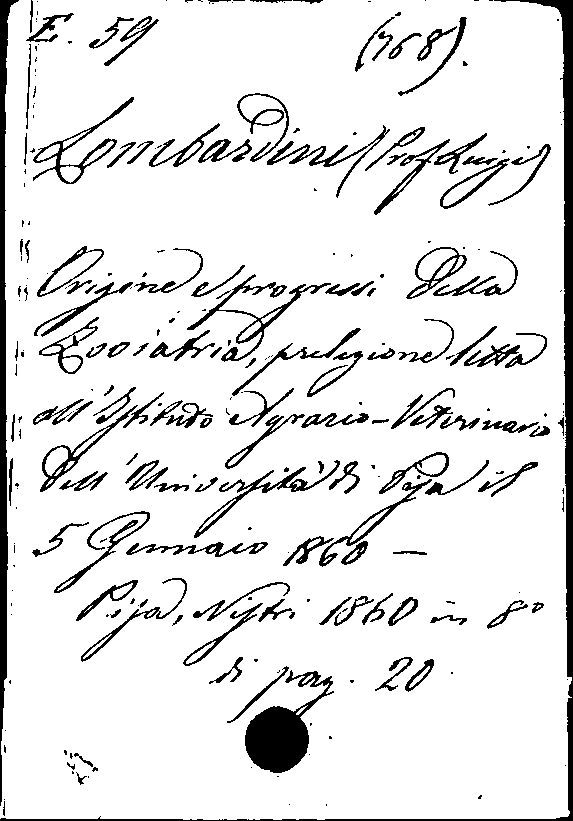 E. 59 (768).
Lombardini (Prof. Luigi)
Origine e progressi della
Zooiatria, prelezione letta
all'Istituto Agrario-Veterinario
dell'Università di Pisa il
5 Gennaio 1860 —
Pisa, Nistri 1860 in 8º
di pag. 20